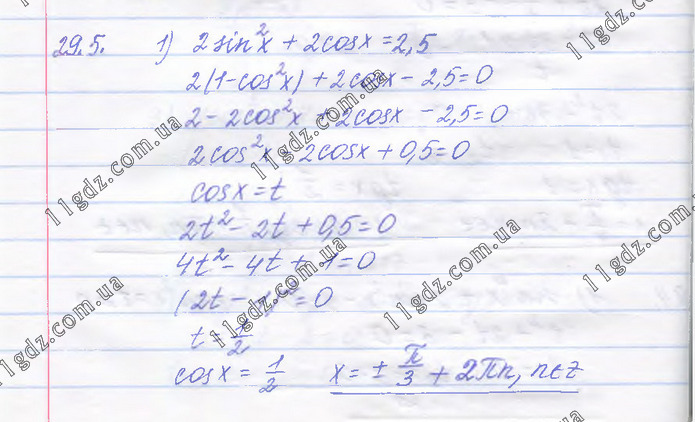 29.5. 1) 2 sin²x + 2cosx = 2,5
2(1-cos²x) + 2cosx - 2,5 = 0
2 - 2cos²x + 2cosx - 2,5 = 0
2cos²x - 2cosx + 0,5 = 0
cosx = t
2t² - 2t + 0,5 = 0
4t² - 4t + 1 = 0
(2t - 1)² = 0
t = 1/2
cosx = 1/2 x = ± π/3 + 2πn, n∈z
11gdz.com.ua
11gdz.com.ua
11gdz.com.ua
11gdz.com.ua
11gdz.com.ua
11gdz.com.ua